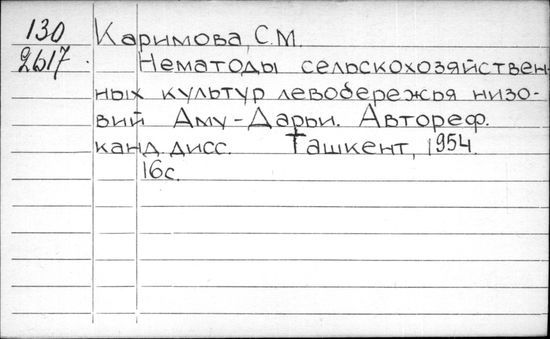 130 Каримова, С.М.
2617. Нематоды сельскохозяйствен-
ных культур левобережья низо-
вий Аму-Дарьи. Автореф.
канд. дисс. Ташкент, 1954.
16с.